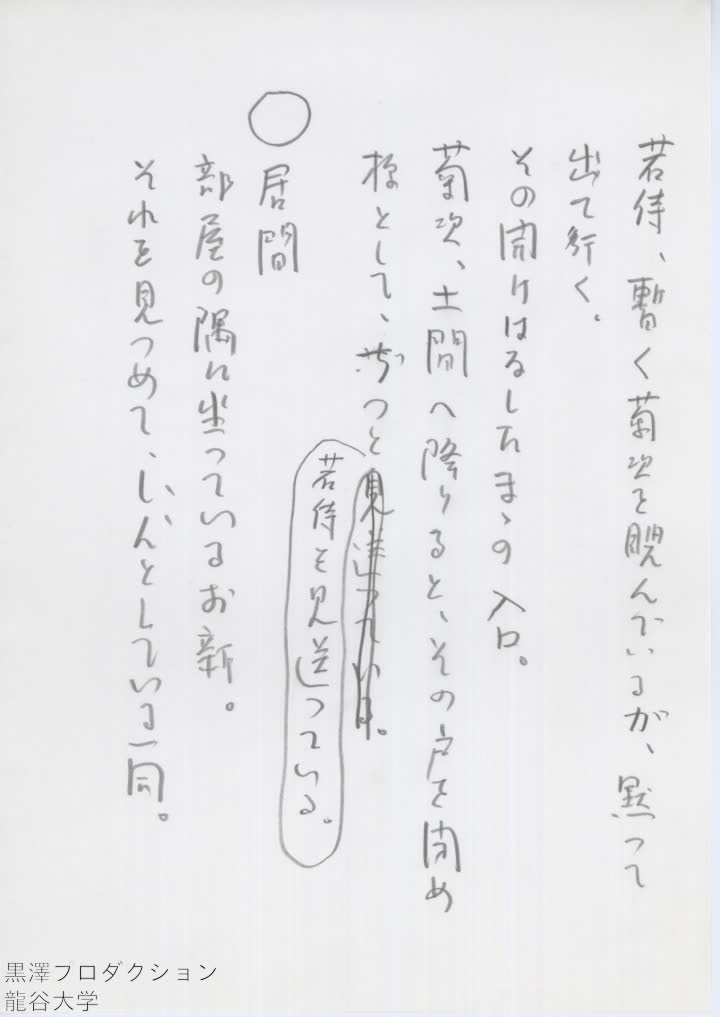 若侍、暫く菊次を睨んでいるが、黙って
出て行く。
その開けはなしたまゝの入口。
菊次、土間へ降りると、その戸を閉め
様として、ぢつと見送つている。
若侍を見送つている。
○ 居間
部屋の隅に坐っているお新。
それを見つめて、しいんとしている一同。
黒澤フロダクション
龍谷大学